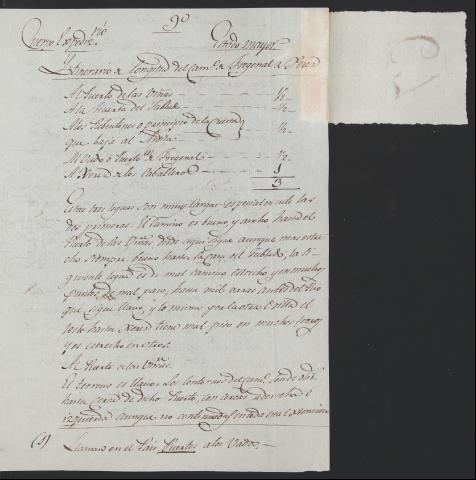 9º
Cuerpo Expedic.rio Estado mayor
Itinerario y longitud del cam.o de Fregenal a Xerez
Al Puerto de las Viñas ½
A la Huerta del ½
A los o principio de la Cuesta
que baja al ½
Al Vado o Puerto de Fregenal ½
A Xerez de los Caballeros 1
3
Estas tres leguas son muy largas especialmente las
dos primeras. El camino es bueno y ancho hasta el
Puerto de las Viñas desde aquí sigue aunque mas estre
cho siempre bueno hasta la Casa del la si
guiente legua es de mal camino estrecho, y en muchos
puntos de mal paso, hasta mil varas antes del Rio
que sigue llano, y lo mismo por la otra orilla el
resto hasta Xerez tiene mal piso en muchos trozos
y es estrecho en otros.
Al Puerto de las Viñas.
El terreno es llano. Los contornos del cam.o desde
hasta cerca de dicho Puerto, con a derecha e
izquierda aunque no continuadas y en toda su extension
(1) Llaman en el Pais Puertos a los Vados.